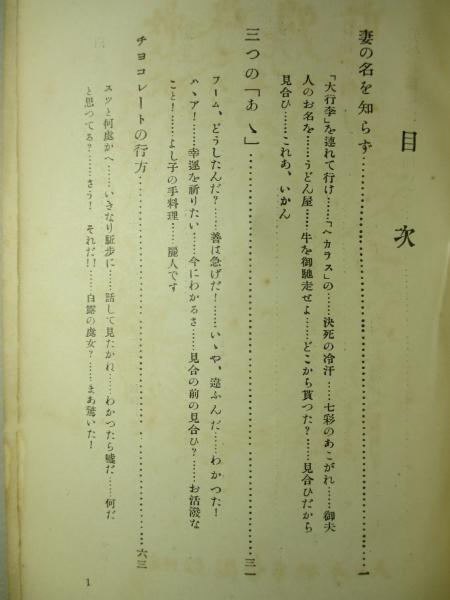 目次
妻の名を知らず……………………………一
「大行李」を連れて行け……「ヘカラス」の……決死の冷汗……七彩のあこがれ……御夫
人のお名を……うどん屋……牛を御馳走せよ……どこから貰つた?……見合ひだから
見合ひ……これあ、いかん
三つの「あゝ」……………………………三一
フーム、どうしたんだ?……善は急げだ!……いゝや、違ふんだ……わかつた!
ハヽア!……幸運を祈りたい……今にわかるさ……見合の前の見合ひ?……お活潑な
こと!……よし子の手料理……麗人です
チヨコレートの行方……………………………六三
スツと何處かへ……いきなり駈歩に……話して見たかれ……わかつたら嘘だ……何だ
と思つてる?……さう! それだ!……白露の處女?……まあ驚いた!
1